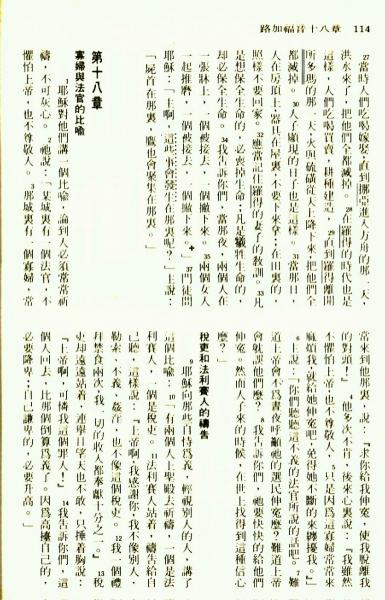 路加福音十八章 114
27當時人們吃喝嫁娶,直到挪亞進入方舟的那一天,
洪水來了,把他們全都滅掉。28在羅得的時代也是
這樣,人們吃喝買賣,耕種建造。29直到羅得離開
所多瑪的那一天,火與硫磺從天上降下來,把他們全
都滅掉。30人子顯現的日子也是這樣。31當那日,
人在房頂上,器具在屋裏,不要下來拿;在田裏的,
照樣不要回家。32應當記住羅得的妻子的教訓。33凡
是想保全生命的,必喪掉生命;凡是犧牲生命的,
却必保全生命。34我告訴你們,當那夜,兩個人在
一張牀上,一個被接去,一個撇下來。35兩個女人
一起推磨,一個被接去,一個撇下來。+37門徒問
耶穌:「主啊,這些事會發生在那裏呢?」主說:
「屍首在那裏,鷹也會聚集在那裏。」
第十八章
寡婦與法官的比喻
1耶穌對他們講一個比喻,論到人必須常常祈
禱,不可灰心。2祂說:「某城裏有一個法官,不
懼怕上帝,也不尊敬人。3那城裏有一個寡婦,常
常來到他那裏,說:『求你給我伸冤,使我脫離我
的對頭!』4他多次不肯,後來心裏說:『我雖然
不懼怕上帝,也不尊敬人,5只是因爲這寡婦常常來
煩瑣我,我就給她伸冤吧,免得她不斷的來纏擾我。』」
6主說:「你們聽聽這不義的法官所說的話吧。7難
道上帝會不爲晝夜呼籲祂的選民伸冤麼?難道上帝
會就誤他們麼?8我告訴你們,祂要快快的給他們
伸冤。然而人子來的時候,在世上找得到這種信心
麼?」
稅吏和法利賽人的禱告
9耶穌向那些自恃爲義,輕視別人的人,講了
這個比喻:10「有兩個人上聖殿去祈禱,一個是法
利賽人,一個是稅吏。11法利賽人站着,禱告給自
己聽,這樣說:『上帝啊,我感謝你,我不像別人,
勒索、不義、姦淫,也不像這個稅吏。12我一個禮
拜禁食兩次,我一切的收入都奉獻十分之一。』13稅
吏却遠遠站着,連舉目望天也不敢,只捶着胸說:
『上帝啊,可憐我這個罪人!』14我告訴你們,這
個人回去,比那個倒算爲義了。因爲高擡自己的,
必要降卑;自己謙卑的,必要升高。」